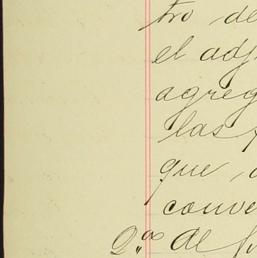 tro de
el adj
agreg
las
que, 
conve
2.º de